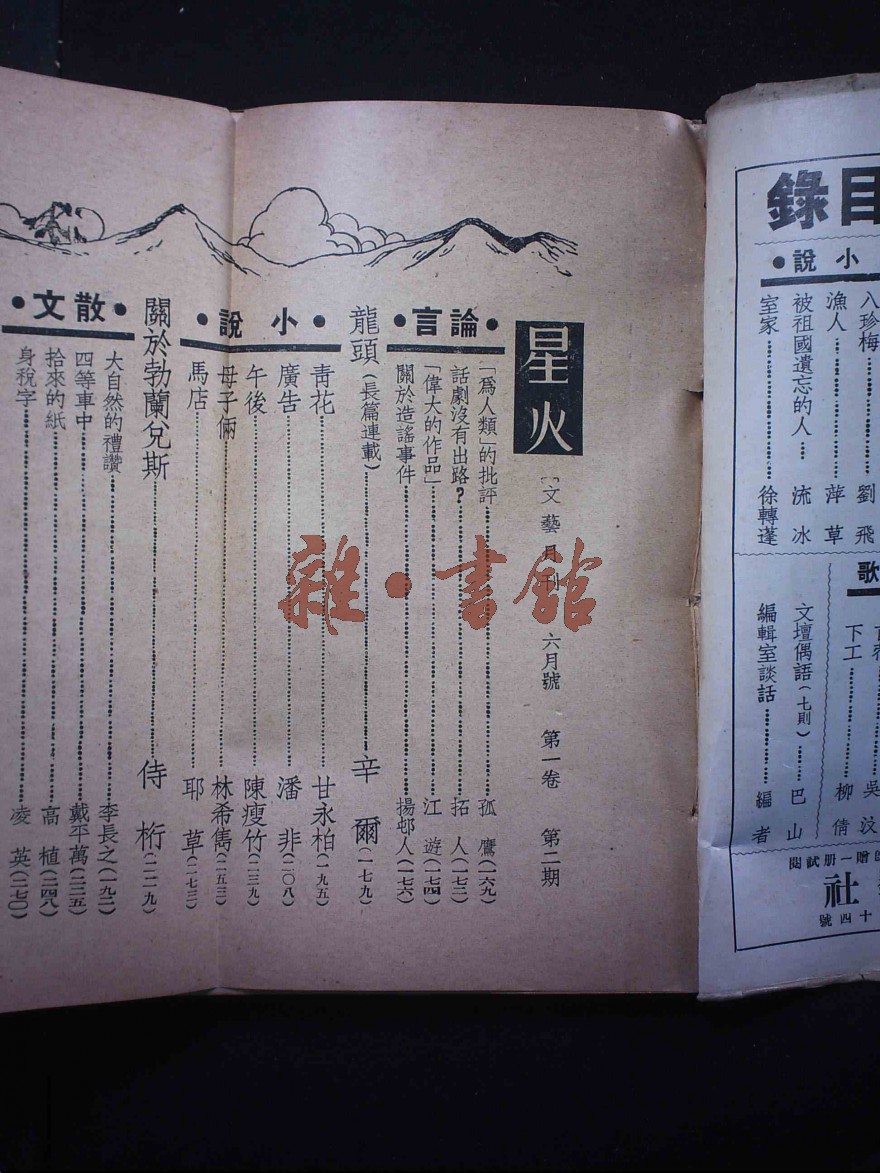 目錄
小說
八珍梅……劉飛
漁人……萍草
被祖國遺忘的人……流冰
室家……徐轉蓬
歌
吳汶
下工……柳倩
文壇偶語(七則)……巴山
編輯室談話……編者
贈一册試閱
社
十四號
星火
〔文藝月刊 六月號 第一卷 第二期
論言
「爲人類」的批評……孤鷹(一六九)
話劇沒有出路?……拓人(一七二)
「偉大的作品」……江遊(一七四)
關於造謠事件……揚邨人(一七六)
龍頭(長篇連載)……辛爾(一七九)
小說
靑花……甘永柏(一九五)
廣告……潘非(二〇八)
午後……陳瘦竹(二三九)
母子倆……林希雋(二五三)
馬店……耶草(二七三)
關於勃蘭兌斯……侍桁(二二九)
散文
大自然的禮讚……李長之(一九二)
四等車中……戴平萬(二三五)
拾來的紙……高植(二四八)
身稅字……凌英(二七〇)
雜·書館